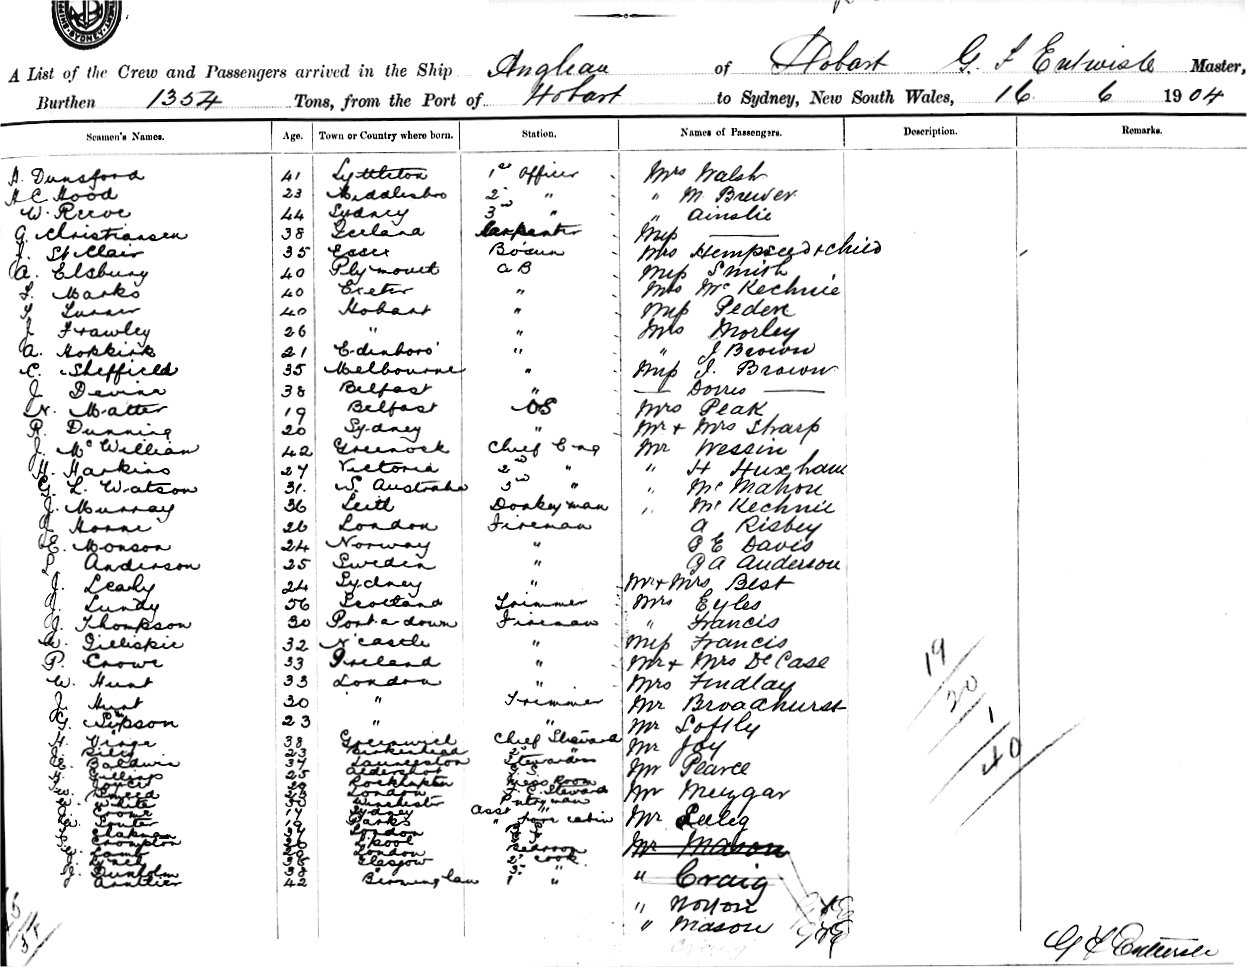 SYDNEY
A List of the Crew and Passengers arrived in the Ship Anglian of Hobart G. F Entwisle Master,
Burthen 1354 Tons, from the Port of Hobart to Sydney, New South Wales, 16 6 1904
Seamen's Names. Age. Town or Country where born. Station. Names of Passengers. Description. Remarks.
A. Dunsford 41 Lyttleton 1st Officer Mrs Walsh
H C Hood 23 Middlesbro 2nd " " M. Brewer
W. Reeve 44 Sydney 3rd " " Ainslie
G. Christiansen 38 Iceland Carpenter Miss
J. St Clair 35 Essex Bosun Mrs Hempseed + child
A. Elsbury 40 Plymouth AB Miss Smith
F. Marks 40 Exeter " Mrs McKechnie
Turner 40 Hobart " Miss Peden
J. Frawley 26 " " Mrs Morley
A. Hopkirk 21 Edinboro' " " J Brown
C. Sheffield 35 Melbourne " Miss J. Brown
J. Devine 38 Belfast " — Dorres —
N. Matter 19 Belfast OS Mrs Peak
R. Dunning 20 Sydney " Mr + Mrs Sharp
J. McWillian 42 Greenock Chief Eng Mr Wessin
H. Harkins 27 Victoria 2nd " " H Huxham
G. L. Watson 31. S. Australia 3rd " " McMahon
J. Murray 36 Leith Donkeyman " McKechnie
Horne 26 London Fireman A Risbey
E. Monson 24 Norway " P E Davis
L. Anderson 25 Sweden " G A Anderson
J. Leahy 24 Sydney " Mr + Mrs Best
J. Lundy 56 Scotland Trimmer Mrs Eyles
J. Thompson 30 Port-a-down Fireman " Francis
W. Gilliskie 32 N'castle " Miss Francis
P. Crowe 33 Ireland " Mr + Mrs De Case
W. Hunt 33 London " Mrs Findlay
J. Hunt 30 " Trimmer Mr Broadhurst
G. Sipson 23 " " Mr Loftly
H. 38 Greenwich Chief Steward Mr Joy
23 Birkenhead 2nd "
E. Baldwin 37 Launceston Stewardess Mr Pearce
25 Aldershot
Rockhampton Mess Room
London Steward Mr Muggar
W. White 30 Winchester Pantryman
Crone 17 Sydney Asst "
Porter 19 Parks " Fore cabin Mr Peleg
Chapman London
Crompton L'pool
Lamb London Bedroom Mr Mason
Glasgow 2nd Cook
J. Dunholm 38 3rd "
42 Birmingham 1st " " Craig
" Norton
" Mason
19
20
1
40
G F Entwisle